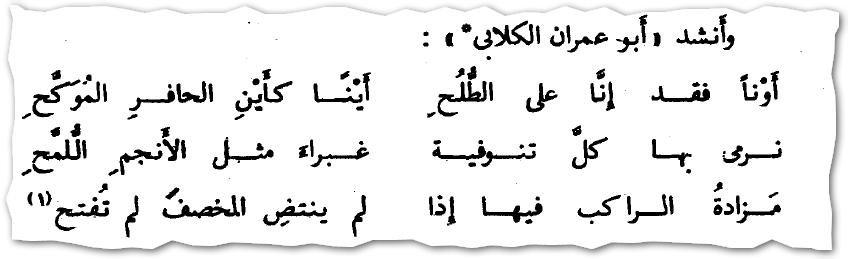 وأنشد « أبو عمران الكلابي* » :
أَوْناً فقد إنَّا على الطُّلَّحِ أَيْنًا كأَيْنِ الحافرِ المُوَكَّحِ
نرمى بها كلَّ تنوفية غبراءَ مثل الأَنجمِ اللُّمَّحِ
مَزادةُ الراكب فيها إذا لم ينتضِ المخصفُ لم تُفتح(١)